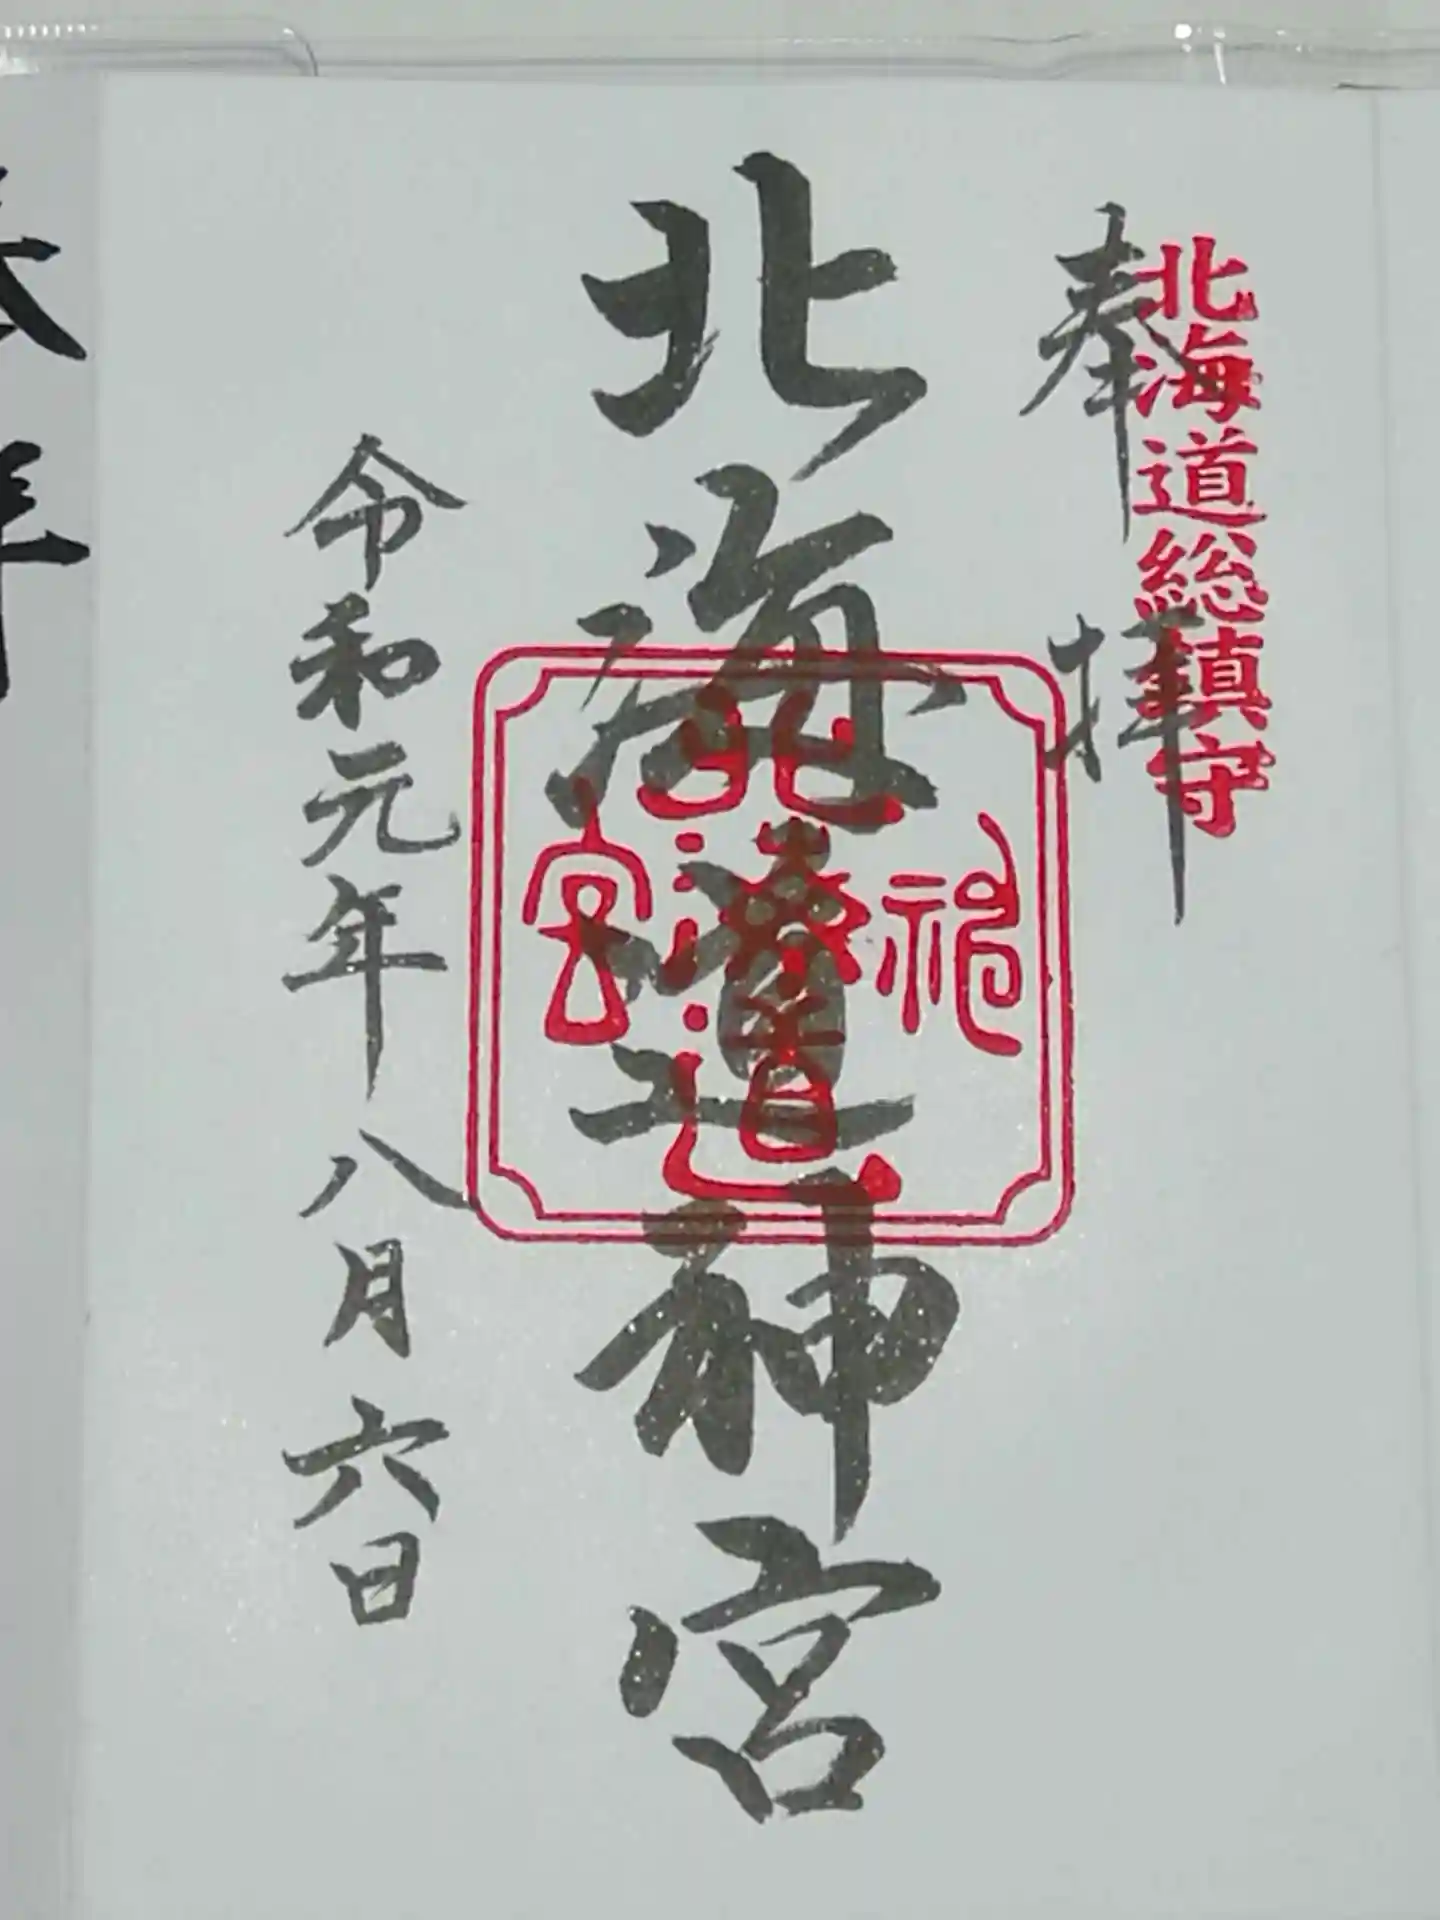 北海道総鎮守
奉拝
北海道神宮
北海道神宮
令和元年八月六日
奉拝